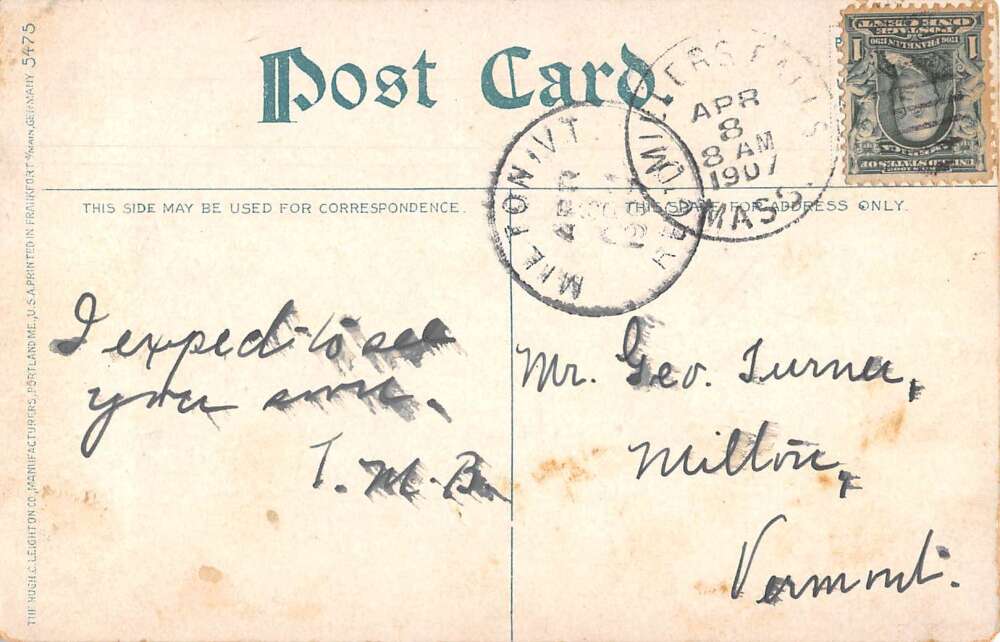 Post Card
MILLERS FALLS
APR
8
8 AM
1907
MASS.
MILTON, VT
APR
THIS SIDE MAY BE USED FOR CORRESPONDENCE.
THIS SPACE FOR ADDRESS ONLY.
I expect to see
you soon.
T. M. B.
Mr. Geo. Turner,
Milton,
Vermont.
THE HUGH C. LEIGHTON CO., MANUFACTURERS, PORTLAND, ME., U.S.A. PRINTED IN FRANKFORT o/MAIN, GERMANY 5475
POSTAGE
ONE CENT
1 1
FRANKLIN
UNITED STATES OF
AMERICA